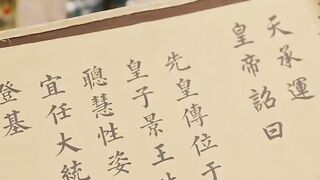 天承運
皇帝詔曰
先皇傳位于
皇子景王
聰慧性姿
宜任大統
登基